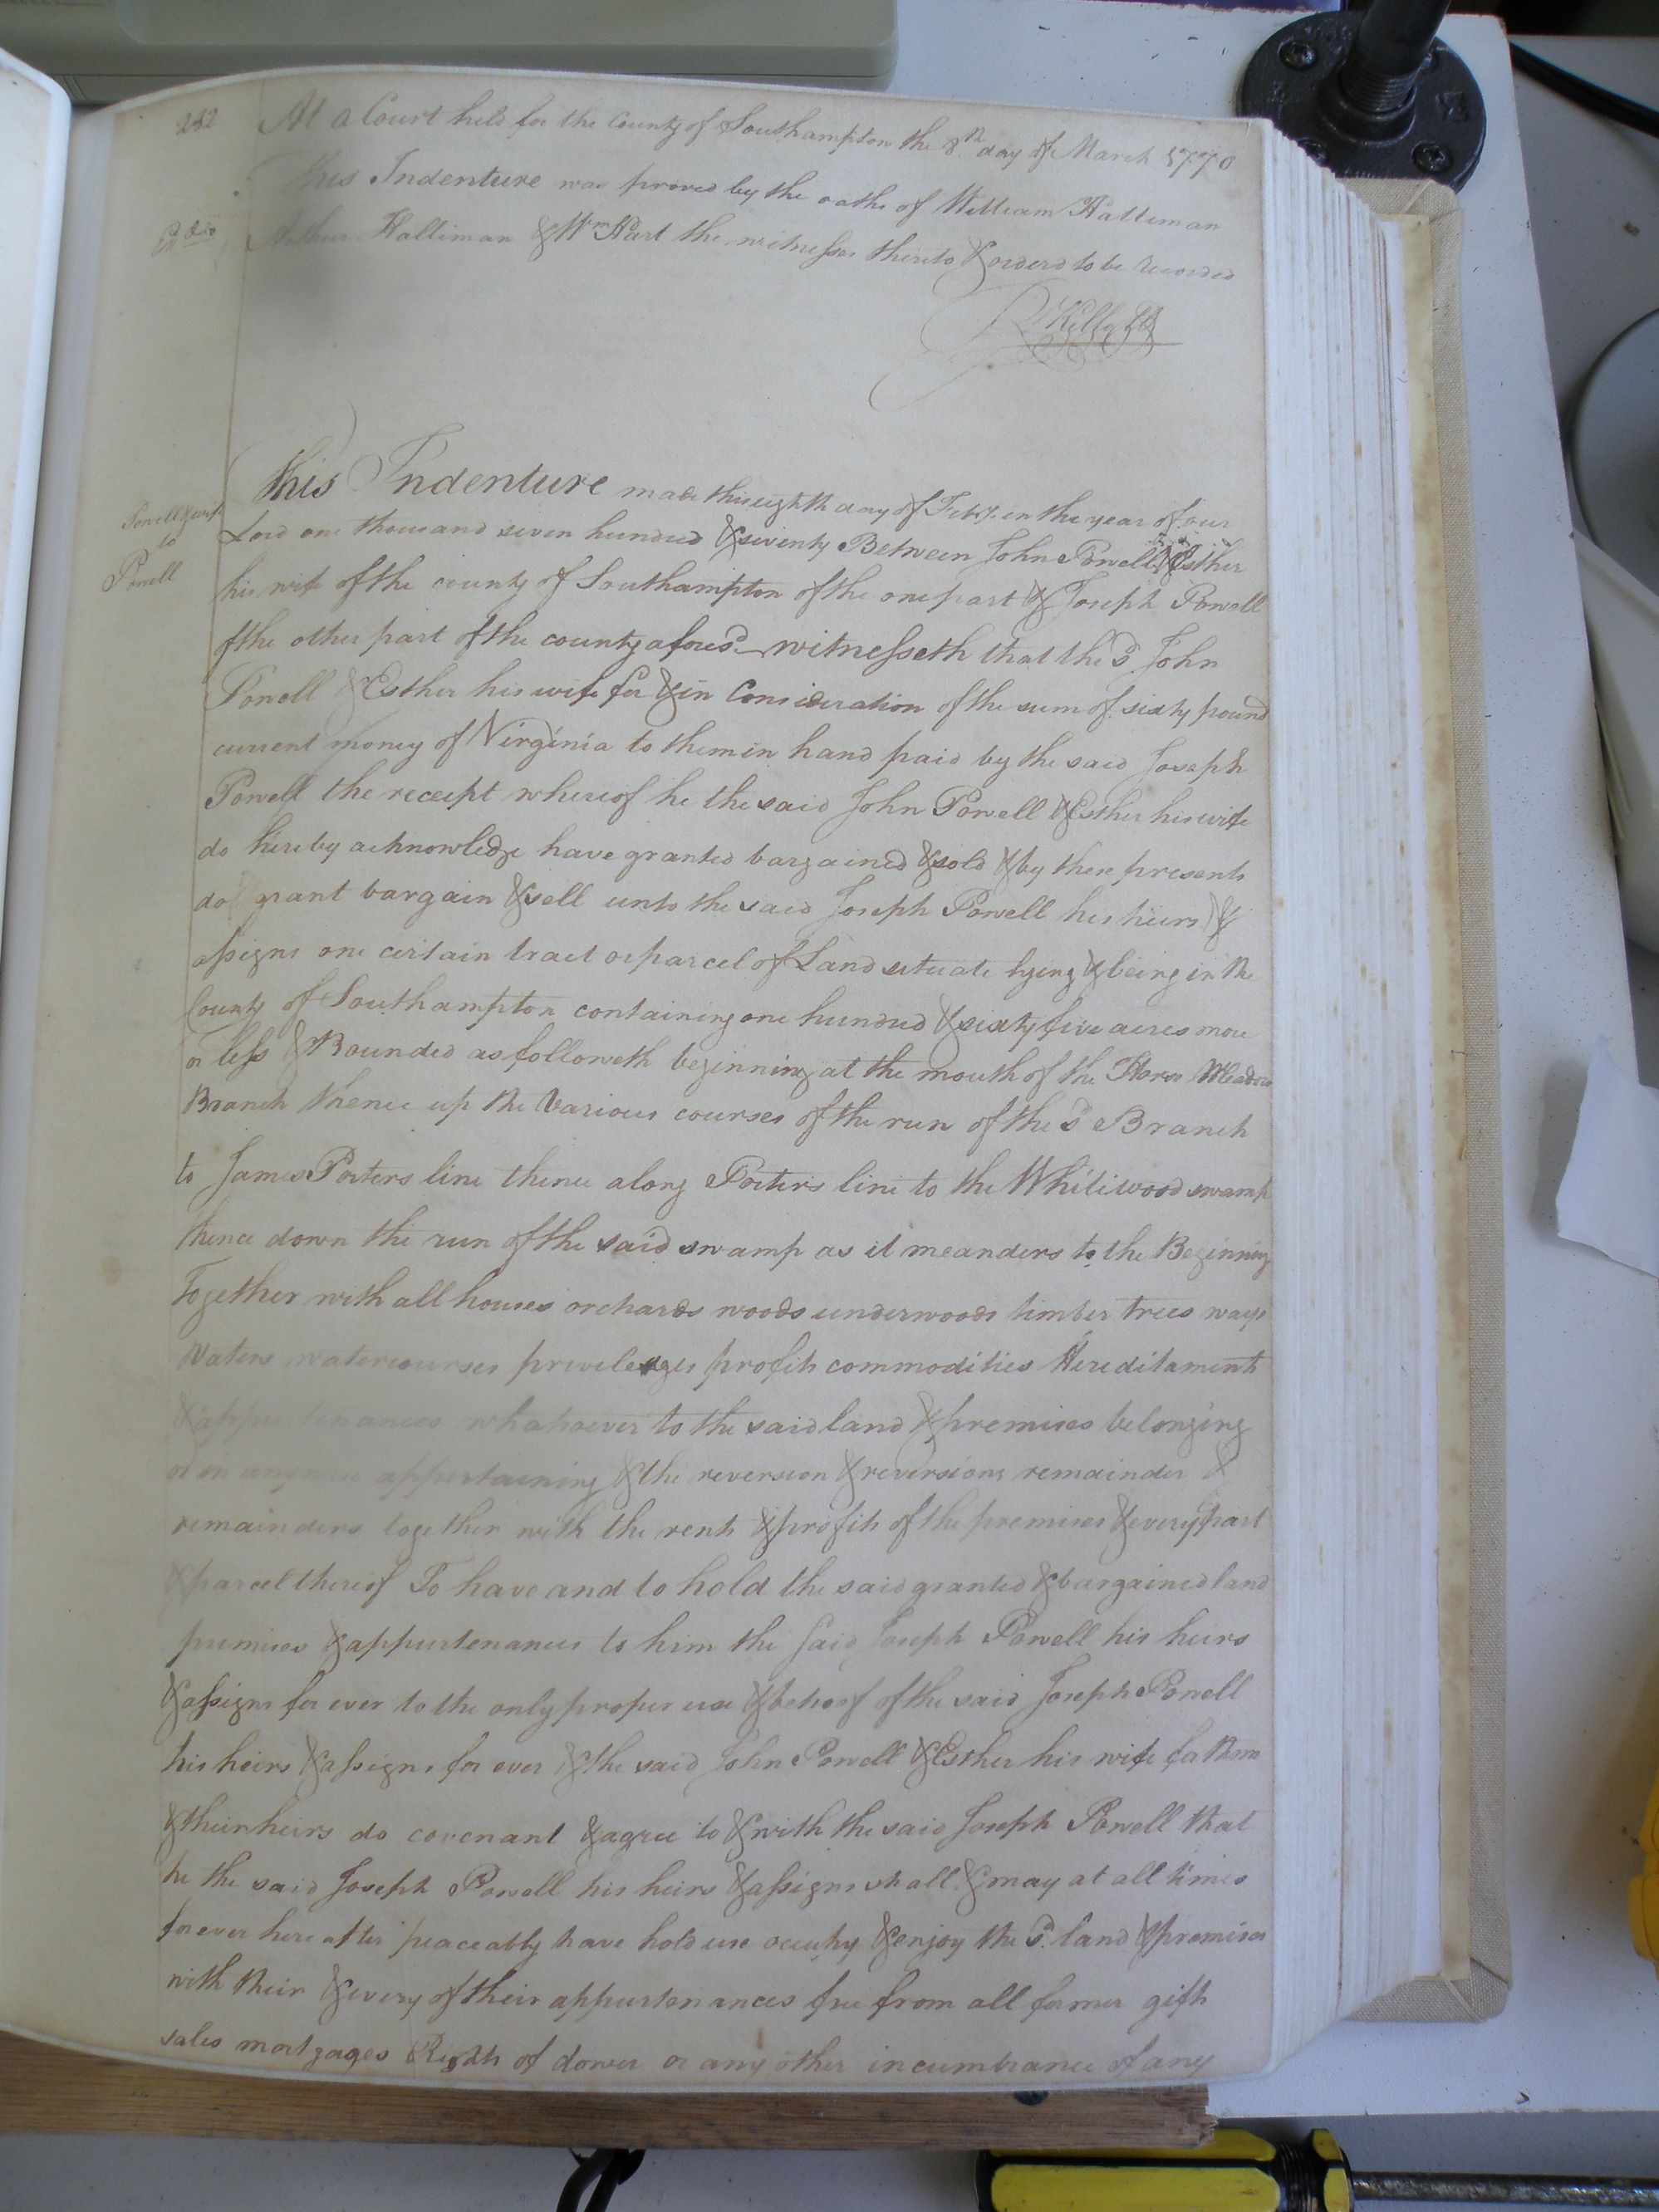 252
At a Court held for the County of Southampton the 8th day of March 1770
This Indenture was proved by the oaths of William Halliman
Arthur Halliman & Wm Hart the witnesses thereto & orderd to be recorded
Powell & wife
to
Powell
This Indenture made this eighth day of Feby. in the year of our
Lord one thousand seven hundred & seventy Between John Powell & Esther
his wife of the county of Southampton of the one part & Joseph Powell
of the other part of the county afores'd witnesseth that the s'd John
Powell & Esther his wife for & in Consideration of the sum of sixty pound
current money of Virginia to them in hand paid by the said Joseph
Powell the receipt whereof he the said John Powell & Esther his wife
do hereby acknowledge have granted bargained & sold & by these presents
do grant bargain & sell unto the said Joseph Powell his heirs &
assigns one certain tract or parcel of Land situate lying & being in the
County of Southampton containing one hundred & sixty five acres more
or less & Bounded as followeth beginning at the mouth of the Horse Meadow
Branch thence up the Various courses of the run of the s'd Branch
to James Porters line thence along Porters line to the Whitewood swamp
thence down the run of the said swamp as it meanders to the Beginning
Together with all houses orchards woods underwoods timber trees ways
Waters watercourses priviledges profits commodities Hereditaments
& appurtenances whatsoever to the said land & premises belonging
or in anywise appertaining & the reversion & reversions remainder &
remainders together with the rents & profits of the premises & every part
& parcel thereof To have and to hold the said granted & bargained land
premises & appurtenances to him the said Joseph Powell his heirs
& assigns for ever to the only proper use & behoof of the said Joseph Powell
his heirs & assigns for ever & the said John Powell & Esther his wife for them
& their heirs do covenant & agree to & with the said Joseph Powell that
he the said Joseph Powell his heirs & assigns shall & may at all times
forever hereafter peaceably have hold use occupy & enjoy the s'd land & premises
with their & every of their appurtenances free from all former gifts
sales mortgages Rights of dower or any other incumbrance of any